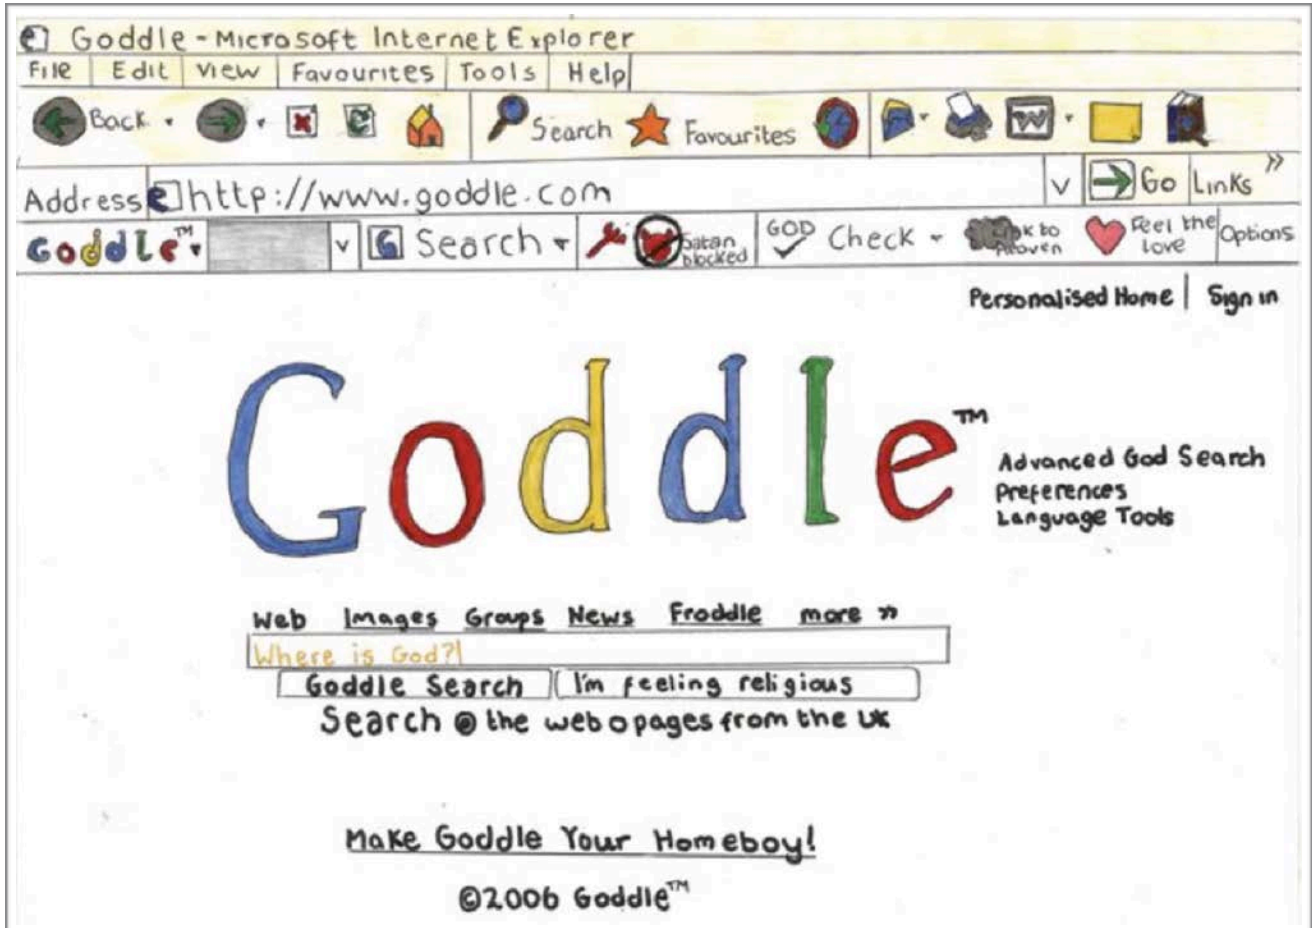 Goddle - Microsoft Internet Explorer
File Edit View Favourites Tools Help
Back Search Favourites W
Address e http://www.goddle.com Go Links »
Goddle™ G Search Satan blocked GOD Check to Feel the Love Options
Personalised Home | Sign in
Goddle™
Advanced God Search
Preferences
Language Tools
Web Images Groups News Froddle more »
Where is God?
Goddle Search I'm feeling religious
Search the web pages from the UK
Make Goddle Your Homeboy!
©2006 Goddle™